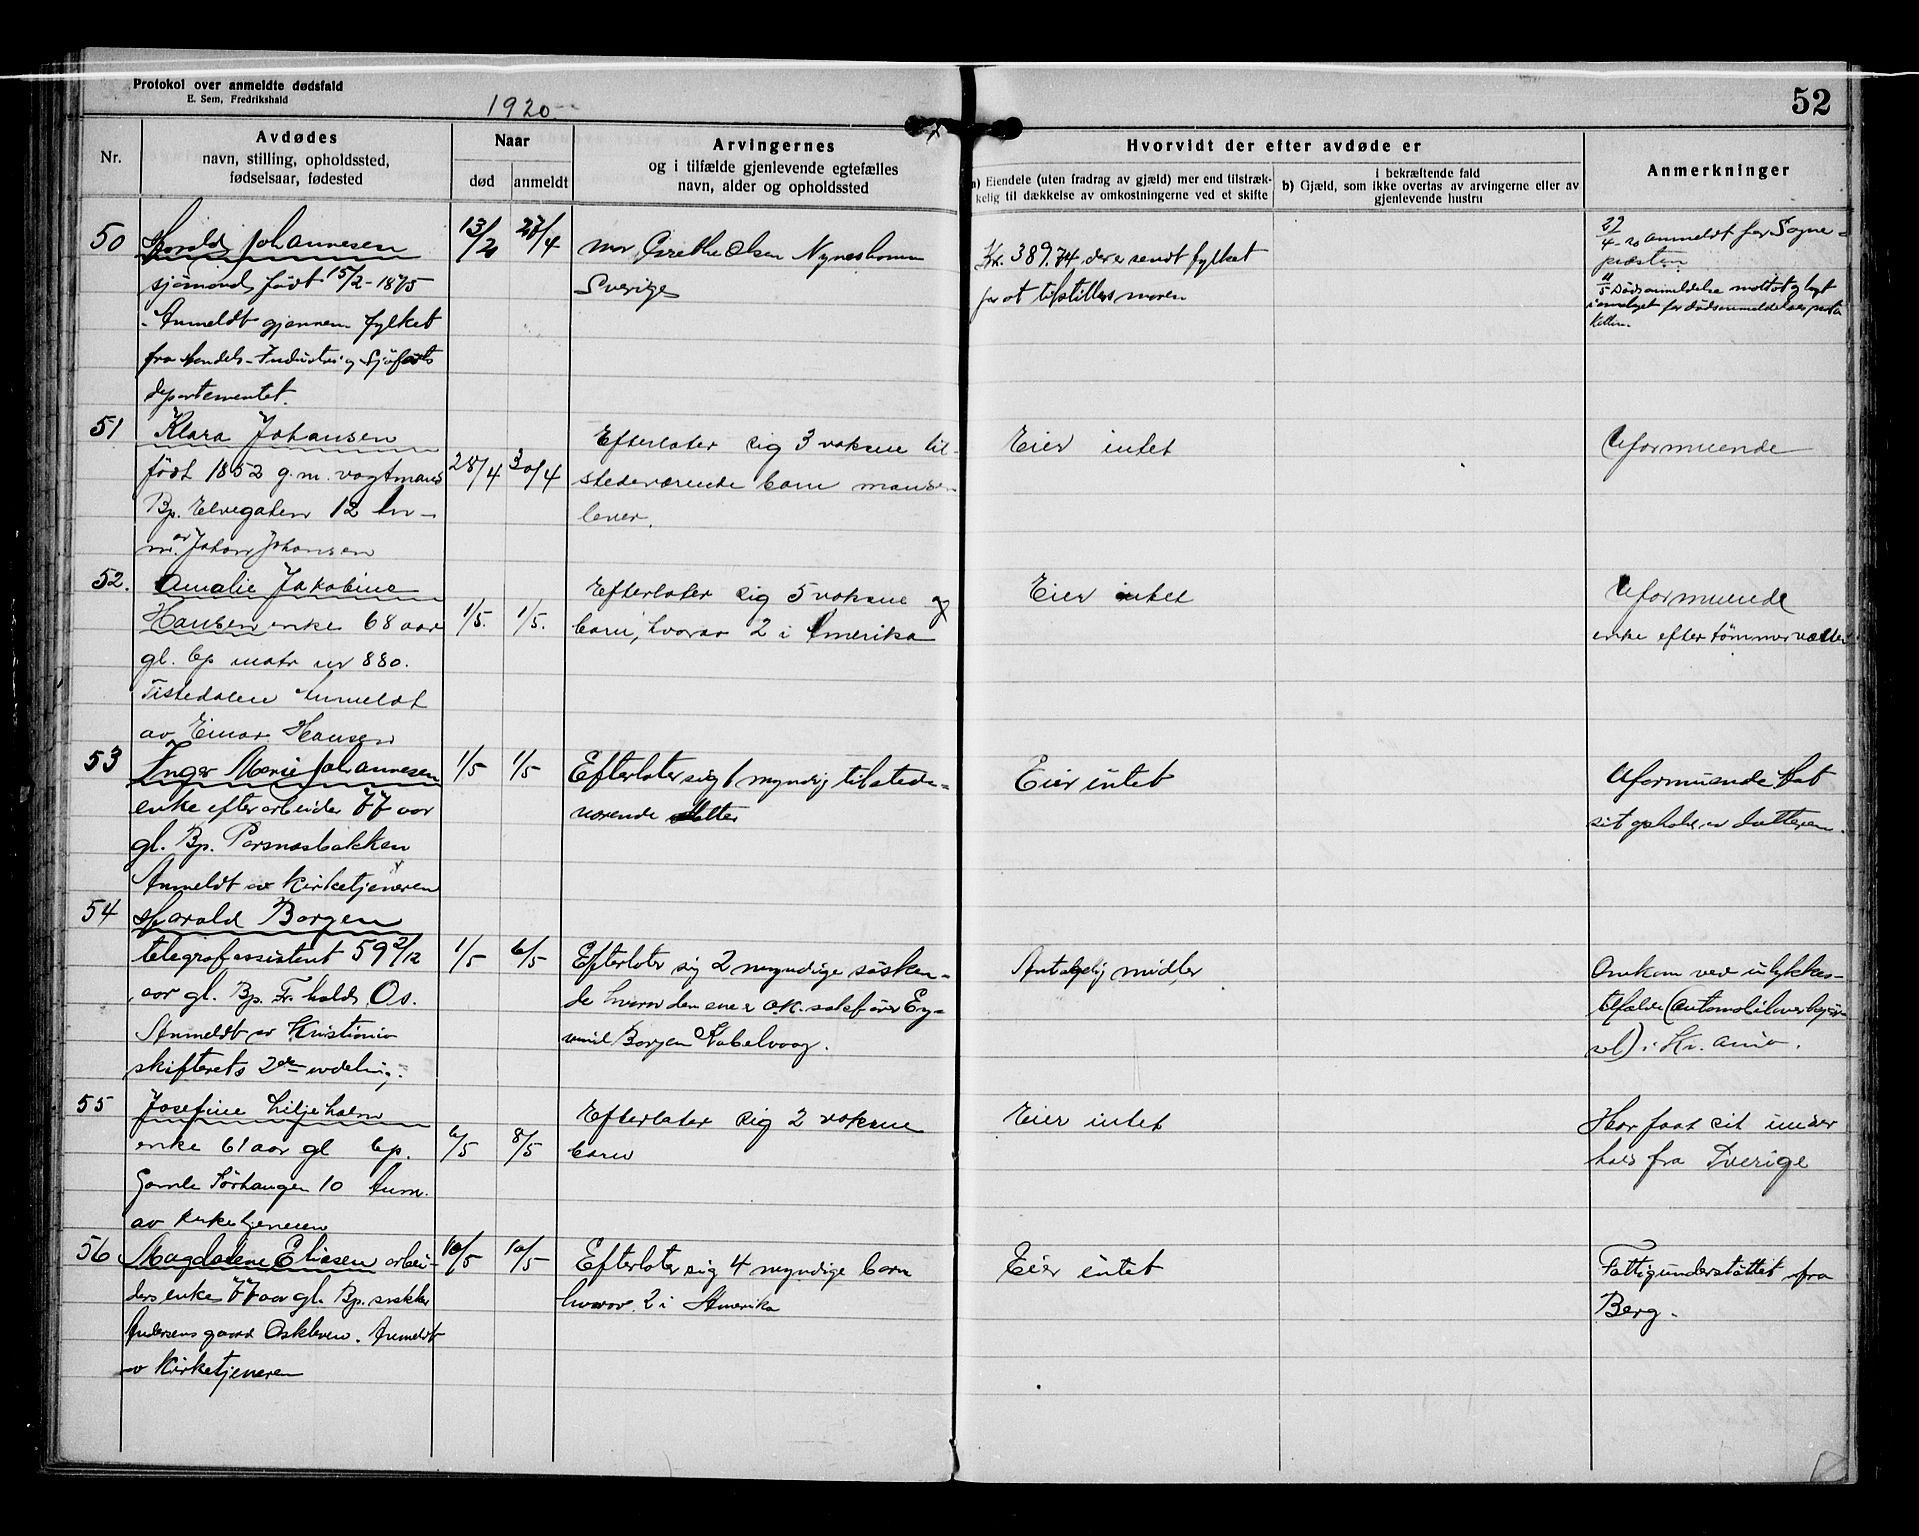 Protokol over anmeldte dødsfald
E. Sem, Fredrikshald
1920
52
Nr.
Avdødes
navn, stilling, opholdssted,
fødselsaar, fødested
Naar
død
anmeldt
Arvingernes
og i tilfælde gjenlevende egtefælles
navn, alder og opholdssted
Hvorvidt der efter avdøde er
a) Eiendele (uten fradrag av gjæld) mer end tilstræk-
kelig til dækkelse av omkostningerne ved et skifte
i bekræftende fald
b) Gjæld, som ikke overtas av arvingerne eller av
gjenlevende hustru
Anmerkninger
50
Harald Johannesen
sjømand født 15/2-1875
Anmeldt gjennem fylket
fra Handels-Industri og Sjøfarts
departementet.
13/2
27/4
mor Grethe Olsen Nyneshamn
Sverige
Kr. 389.74 der er sendt fylket
for at tilstilles moren
27/4-20 anmeldt for Sogne-
præsten
11/5 Dødsanmeldelse mottat og lagt
i omslaget for dødsanmeldelses proto
kollen.
51
Klara Johansen
født 1852 g.m. vagtmand
Bp. Elvegaten 12 An-
m. av Johan Johansen
28/4
30/4
Efterlater sig 3 voksne til-
stedeværende barn manden
lever.
Eier intet
Uformuende
52.
Amalie Jakobine
Hansen enke 68 aar
gl. bp matr nr 880.
Tistedalen Anmeldt
av Einar Hansen
1/5
1/5.
Efterlater sig 5 voksne og
barn, hvorav 2 i Amerika
Eier intet
Uformuende
enke efter tømmer
53
Inger Marie Johannesen
enke efter arbeider 77 aar
gl. Bp. Pærnæsbakken
Anmeldt av Kirketjeneren
1/5
1/5
Efterlater sig 1 myndig tilstede-
værende datter
Eier intet
Uformuende Hat
sit ophold av datteren.
54
Harald Borgen
telegrafassistent 59 2/12
aar gl. Bp. Fr.hald, Os.
Anmeldt av Kristiania
skifterets 2den avdeling.
1/5
6/5
Efterlater sig 2 myndige søsken-
de hvorav den ene er o.r. sakfører Ey-
vind Borgen Kabelvaag.
Antagelig midler
Omkom ved ulykkes-
tilfælde (automobiloverkjør-
sel) i Kr.ania.
55
Josefine Liljeholm
enke 61 aar gl bp.
Gamle Sørhaugen 10 Anm.
av kirketjeneren
6/5
8/5
Efterlater sig 2 voksne
barn
Eier intet
Har faat sit under
hold fra Sverige
56
Magdalene Eliasen arbei-
ders enke 77 aar gl. Bp. snekker
Andersens gaard Oskleven. Anmeldt
av Kirketjeneren
10/5
10/5
Efterlater sig 4 myndige barn
hvorav 2 i Amerika
Eier intet
Fattigunderstøttet fra
Berg.